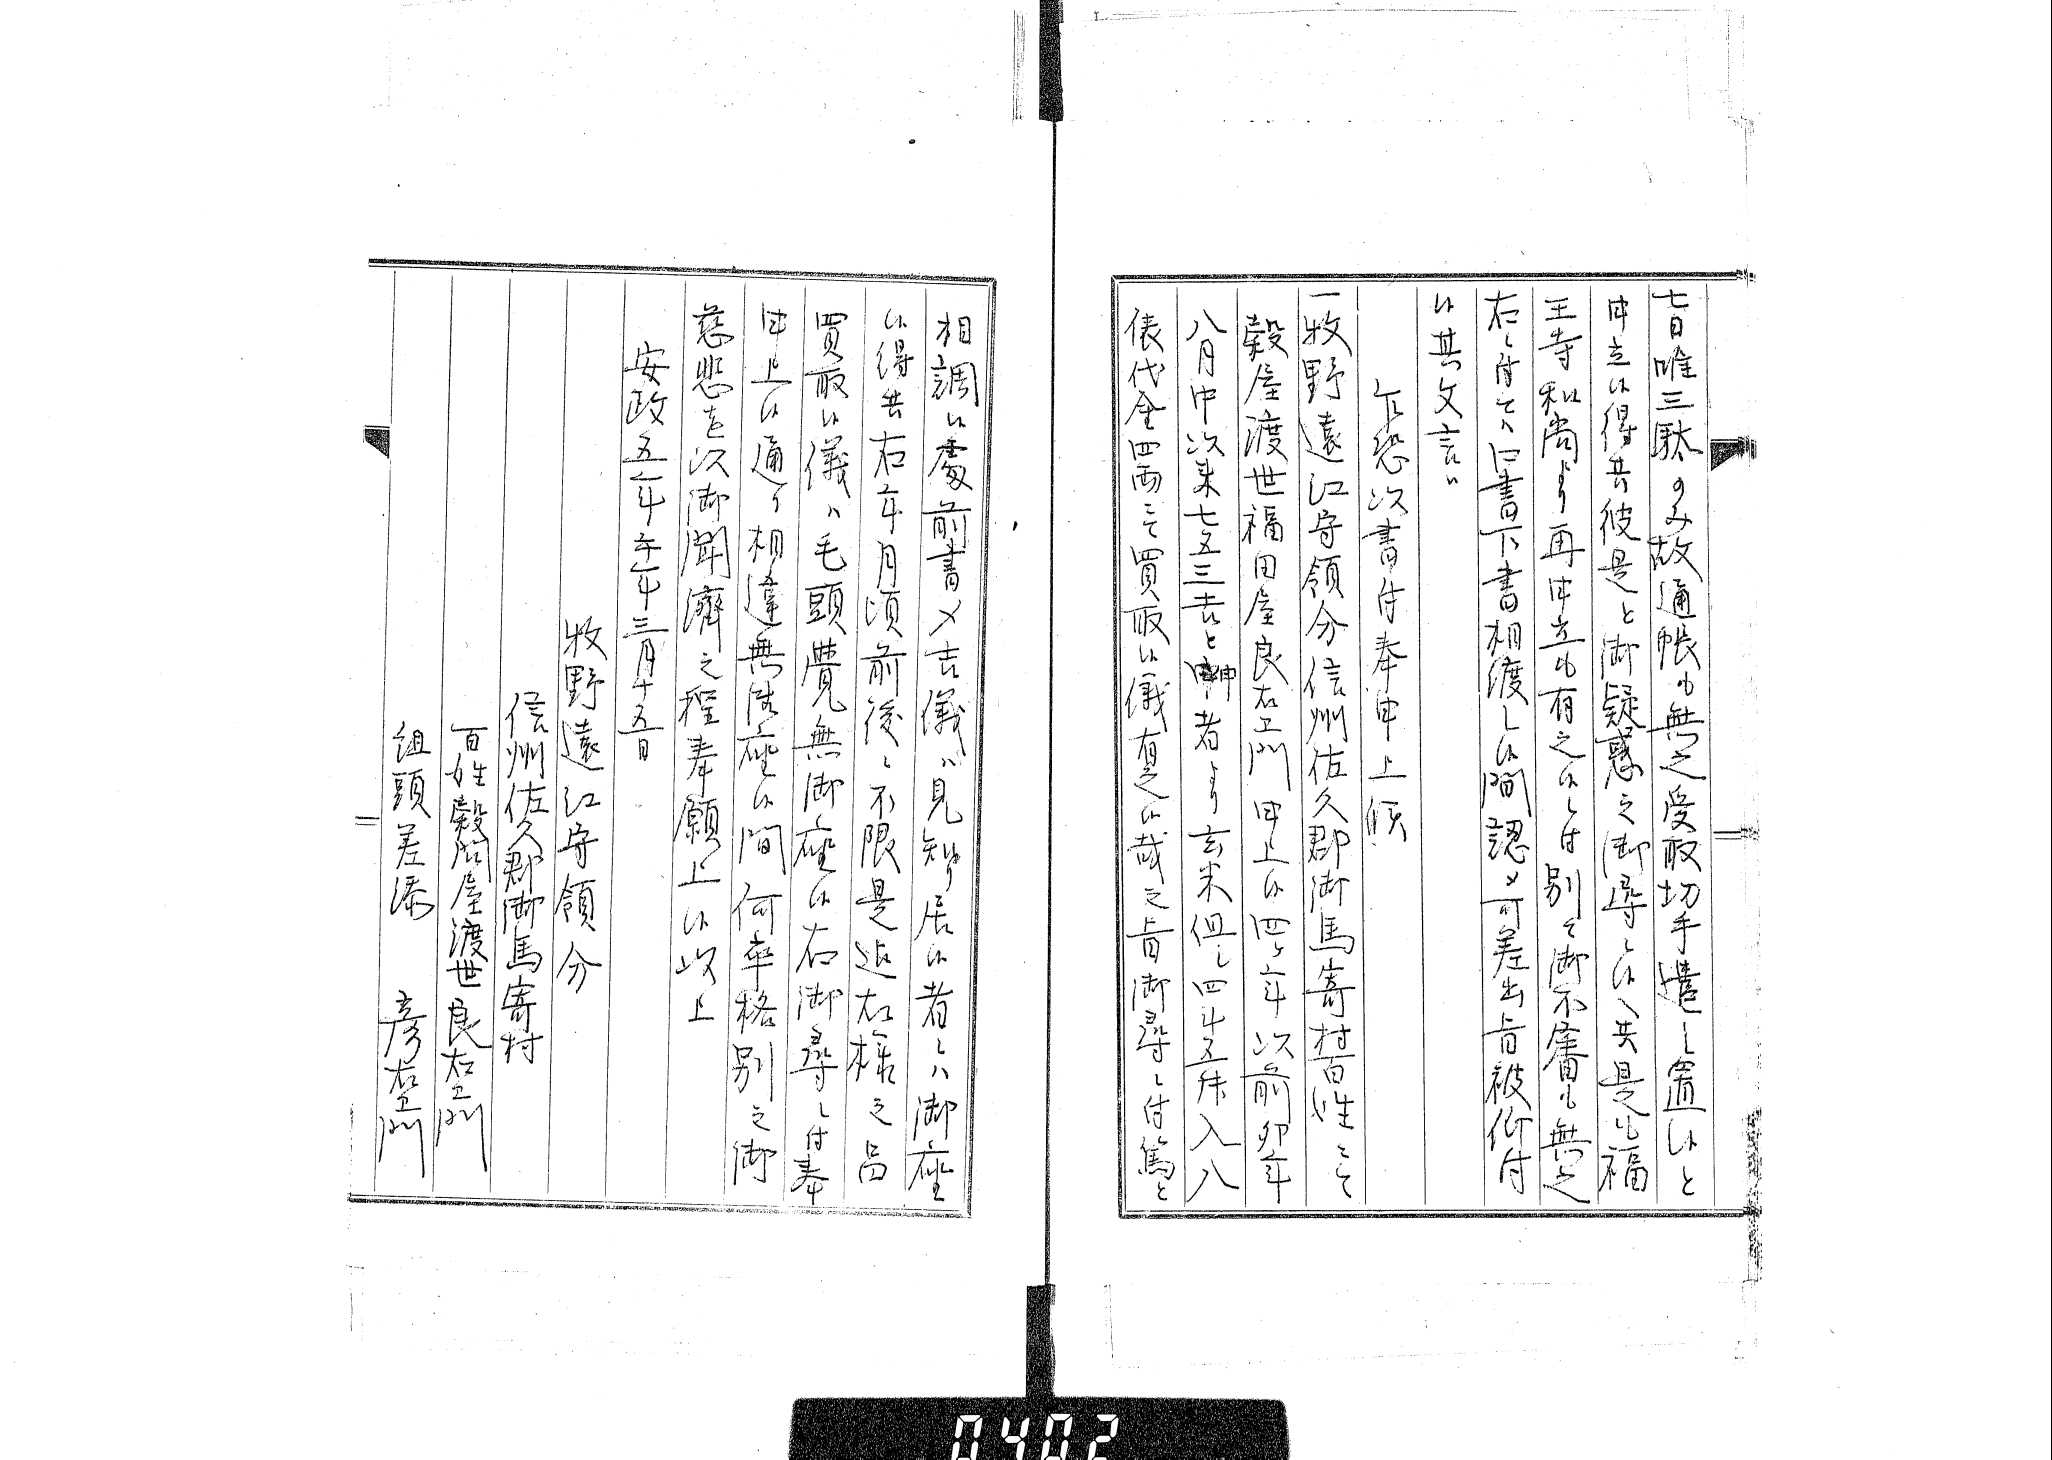 七日唯三駄のみ故通帳も無之受取切手遣し置候と
申立候得共彼是と御疑惑之御尋ニ候へ共是も福
王寺和尚より再申立も有之候ニ付別て御不審も無之
右ニ付てハ口書下書相渡し候間認メ可差出旨被仰付
候其文言ハ
乍恐以書付奉申上候
一牧野遠江守領分信州佐久郡御馬寄村百姓ニて
穀屋渡世福田屋良右衛門申上候四ヶ年以前卯年
八月中以来七五三吉と申者より玄米但し四斗五升入八
俵代金四両ニて買取候儀有之候哉之旨御尋ニ付篤と
相調候處前書メ吉儀ハ見知り居候者ニハ御座
候得共右年月頃前後ニ不限是迄右様之品
買取候儀ハ毛頭覺無御座候右御尋ニ付奉
申上候通り相違無御座候間何卒格別之御
慈悲を以御聞濟之程奉願上候以上
安政五年午年三月十五日
牧野遠江守領分
信州佐久郡御馬寄村
百姓穀屋渡世良右衛門
組頭差添　彦右衛門
0402